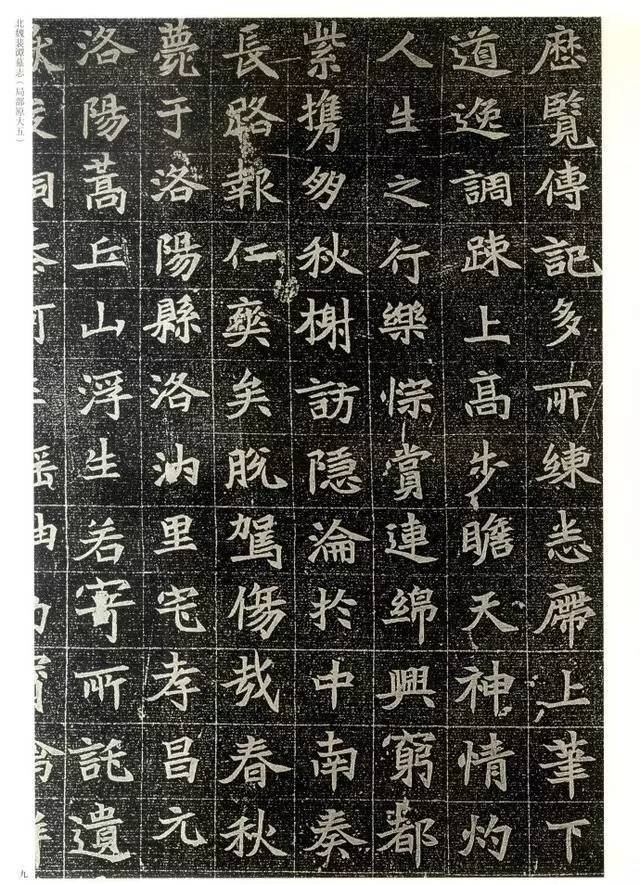 厯覽傳記多所練悉席上筆下
道逸調踈上高步瞻天神情灼
人生之行樂悰賞連綿興窮都
紫携秋榭訪隱淪於中南奏
長路報仁爽矣脫駕傷哉春秋
薨于洛陽縣洛汭里宅孝昌元
洛陽蒿丘山浮生若寄所託遺
北魏裴譚墓志（局部原大五）
九